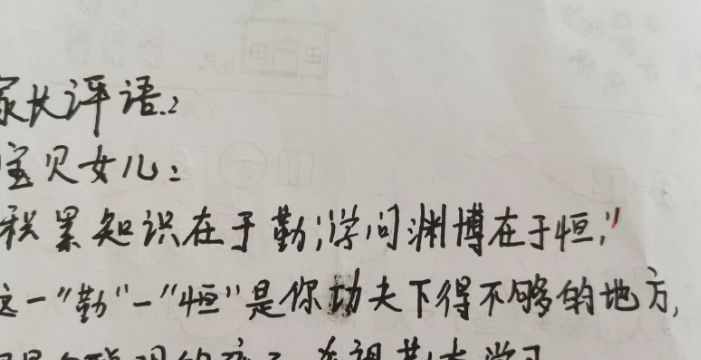 家长评语:
宝贝女儿:
积累知识在于勤,学问渊博在于恒,"
这一"勤"一"恒"是你功夫下得不够的地方,